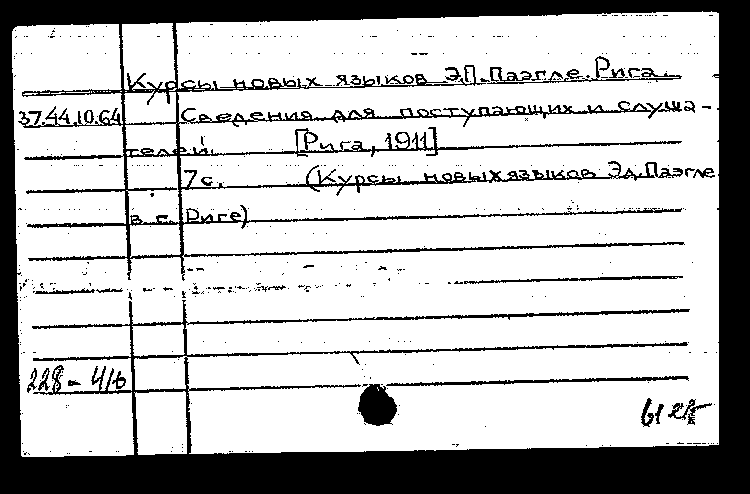 Курсы новых языков Э.П.Паэгле.Рига.
37.44.10.64 Сведения для поступающих и слуша-
телей. [Рига, 1911]
7с. (Курсы новых языков Эд.Паэгле
в г. Риге)
228-416